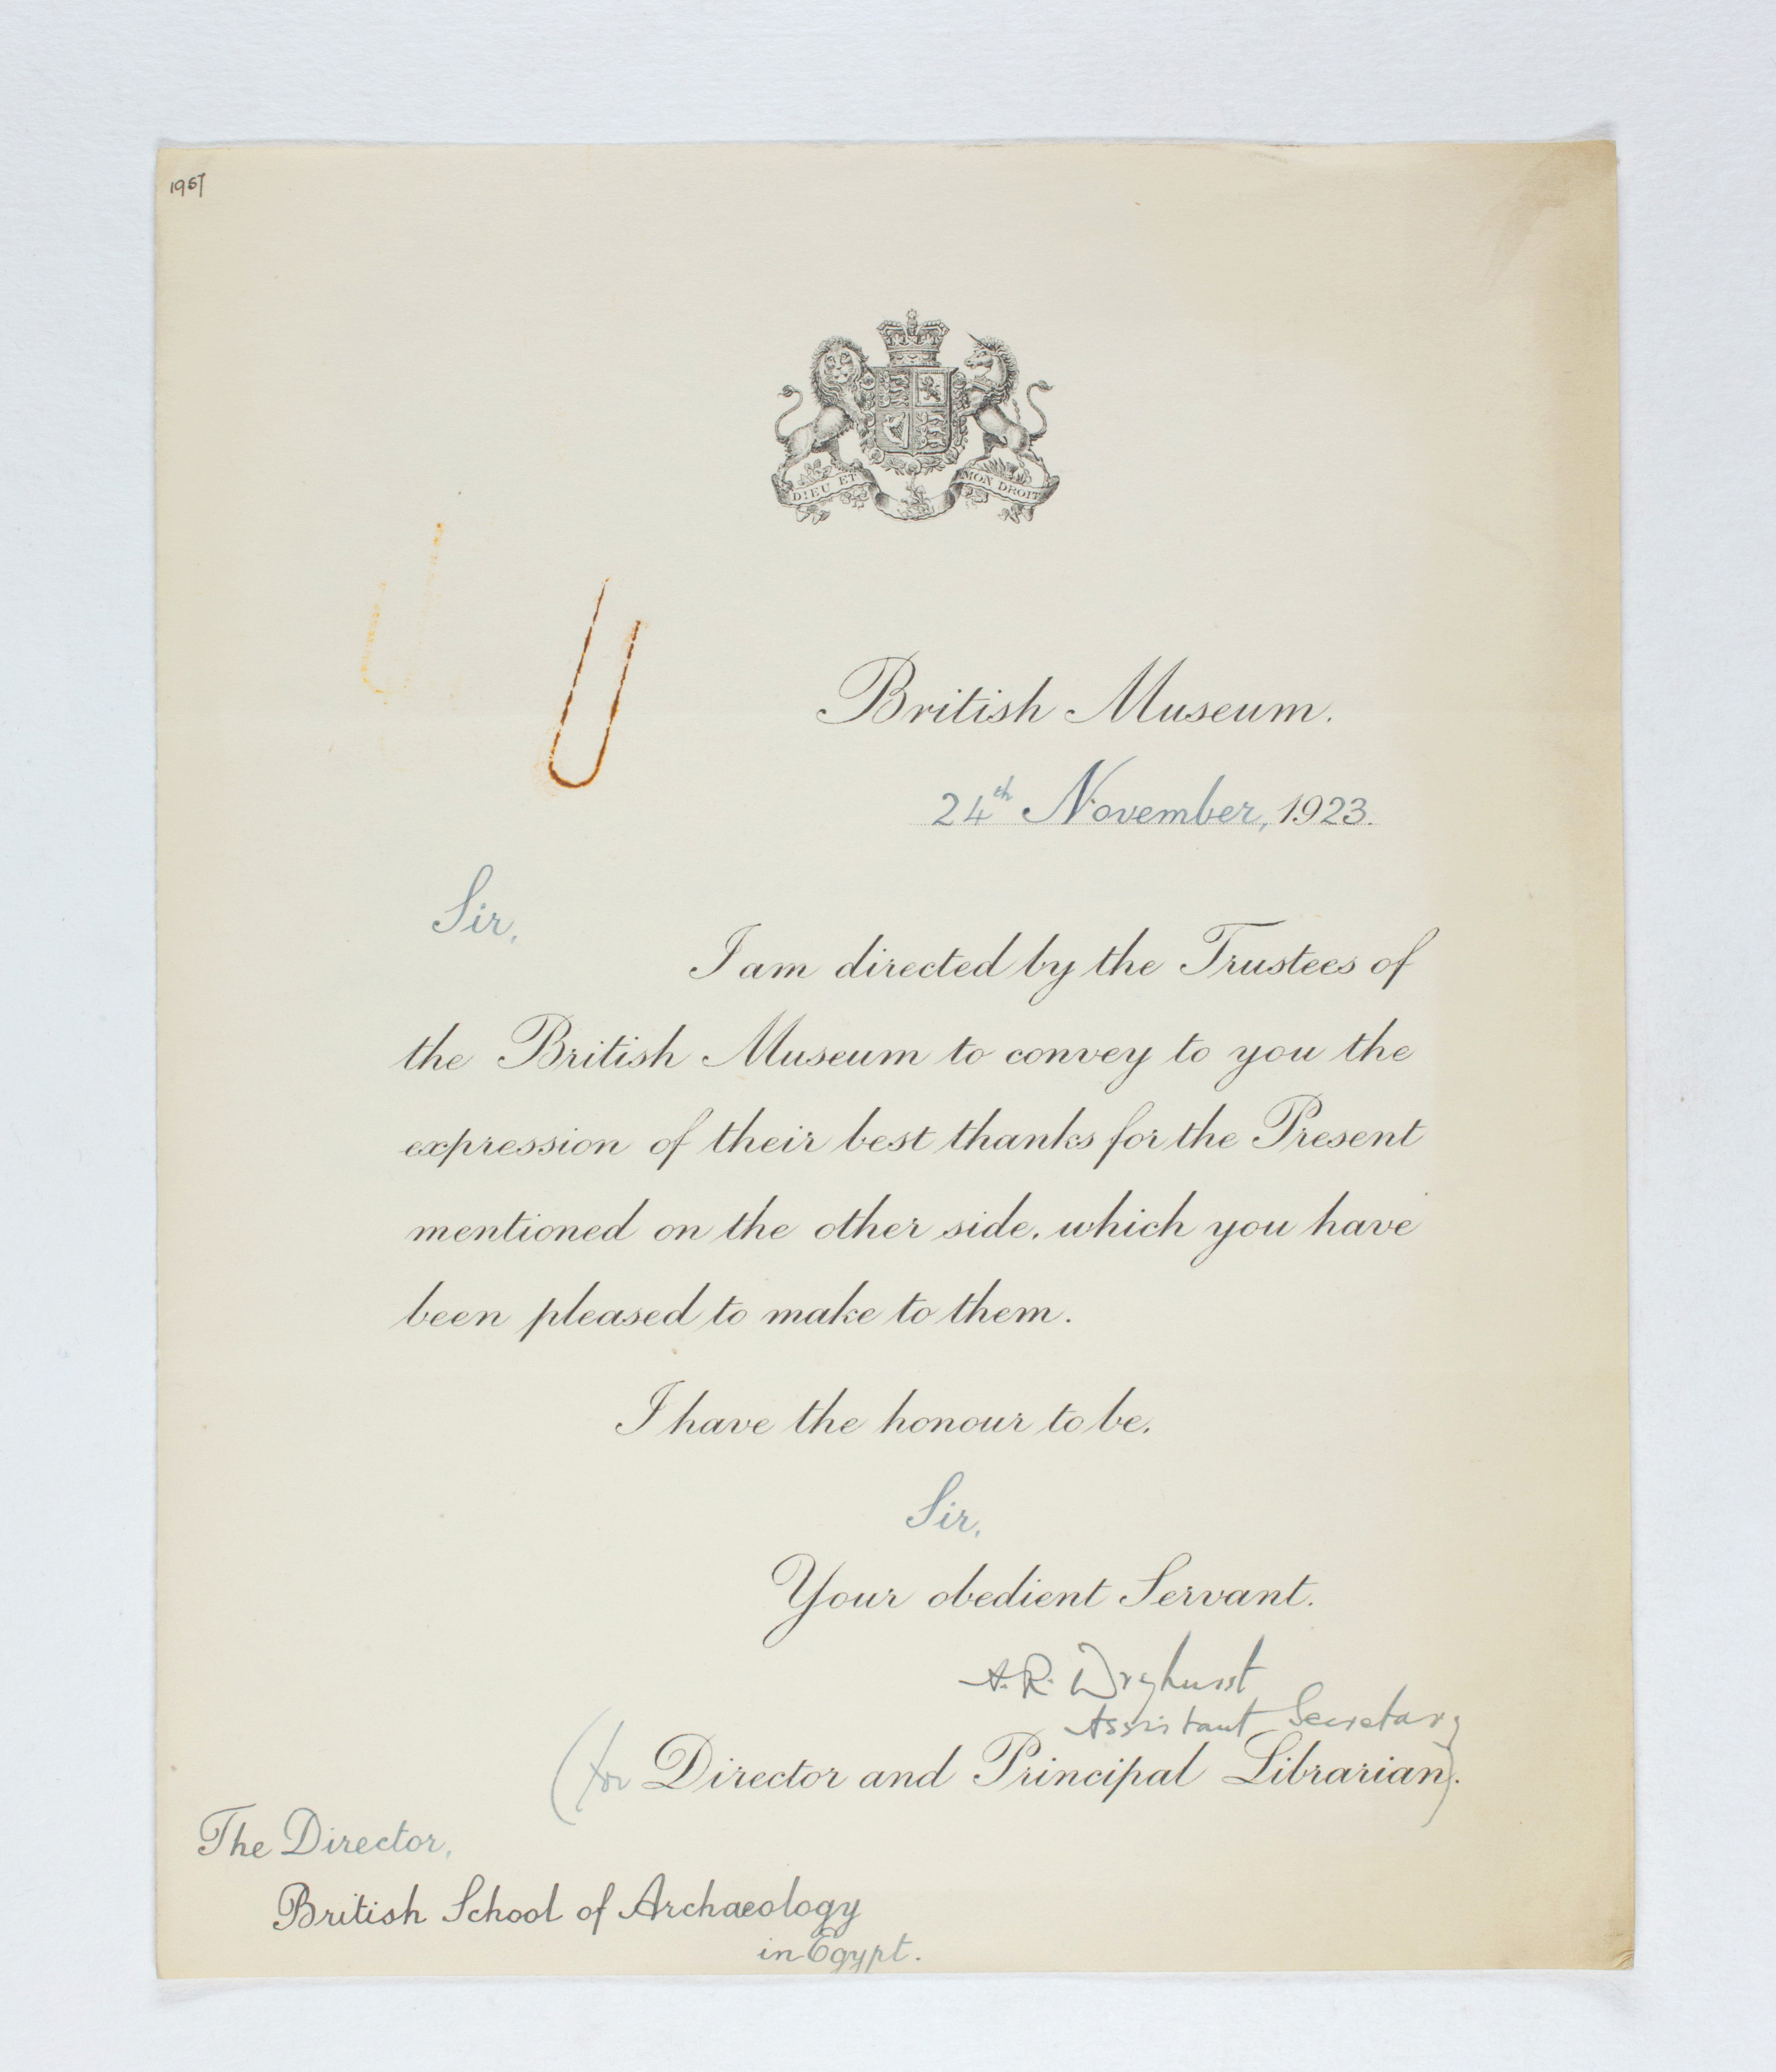 1957
DIEU ET MON DROIT
British Museum.
24th November, 1923.
Sir,
I am directed by the Trustees of
the British Museum to convey to you the
expression of their best thanks for the Present
mentioned on the other side, which you have
been pleased to make to them.
I have the honour to be,
Sir,
Your obedient Servant.
A. R. Dryhurst
Assistant Secretary
(for Director and Principal Librarian).
The Director,
British School of Archaeology
in Egypt.